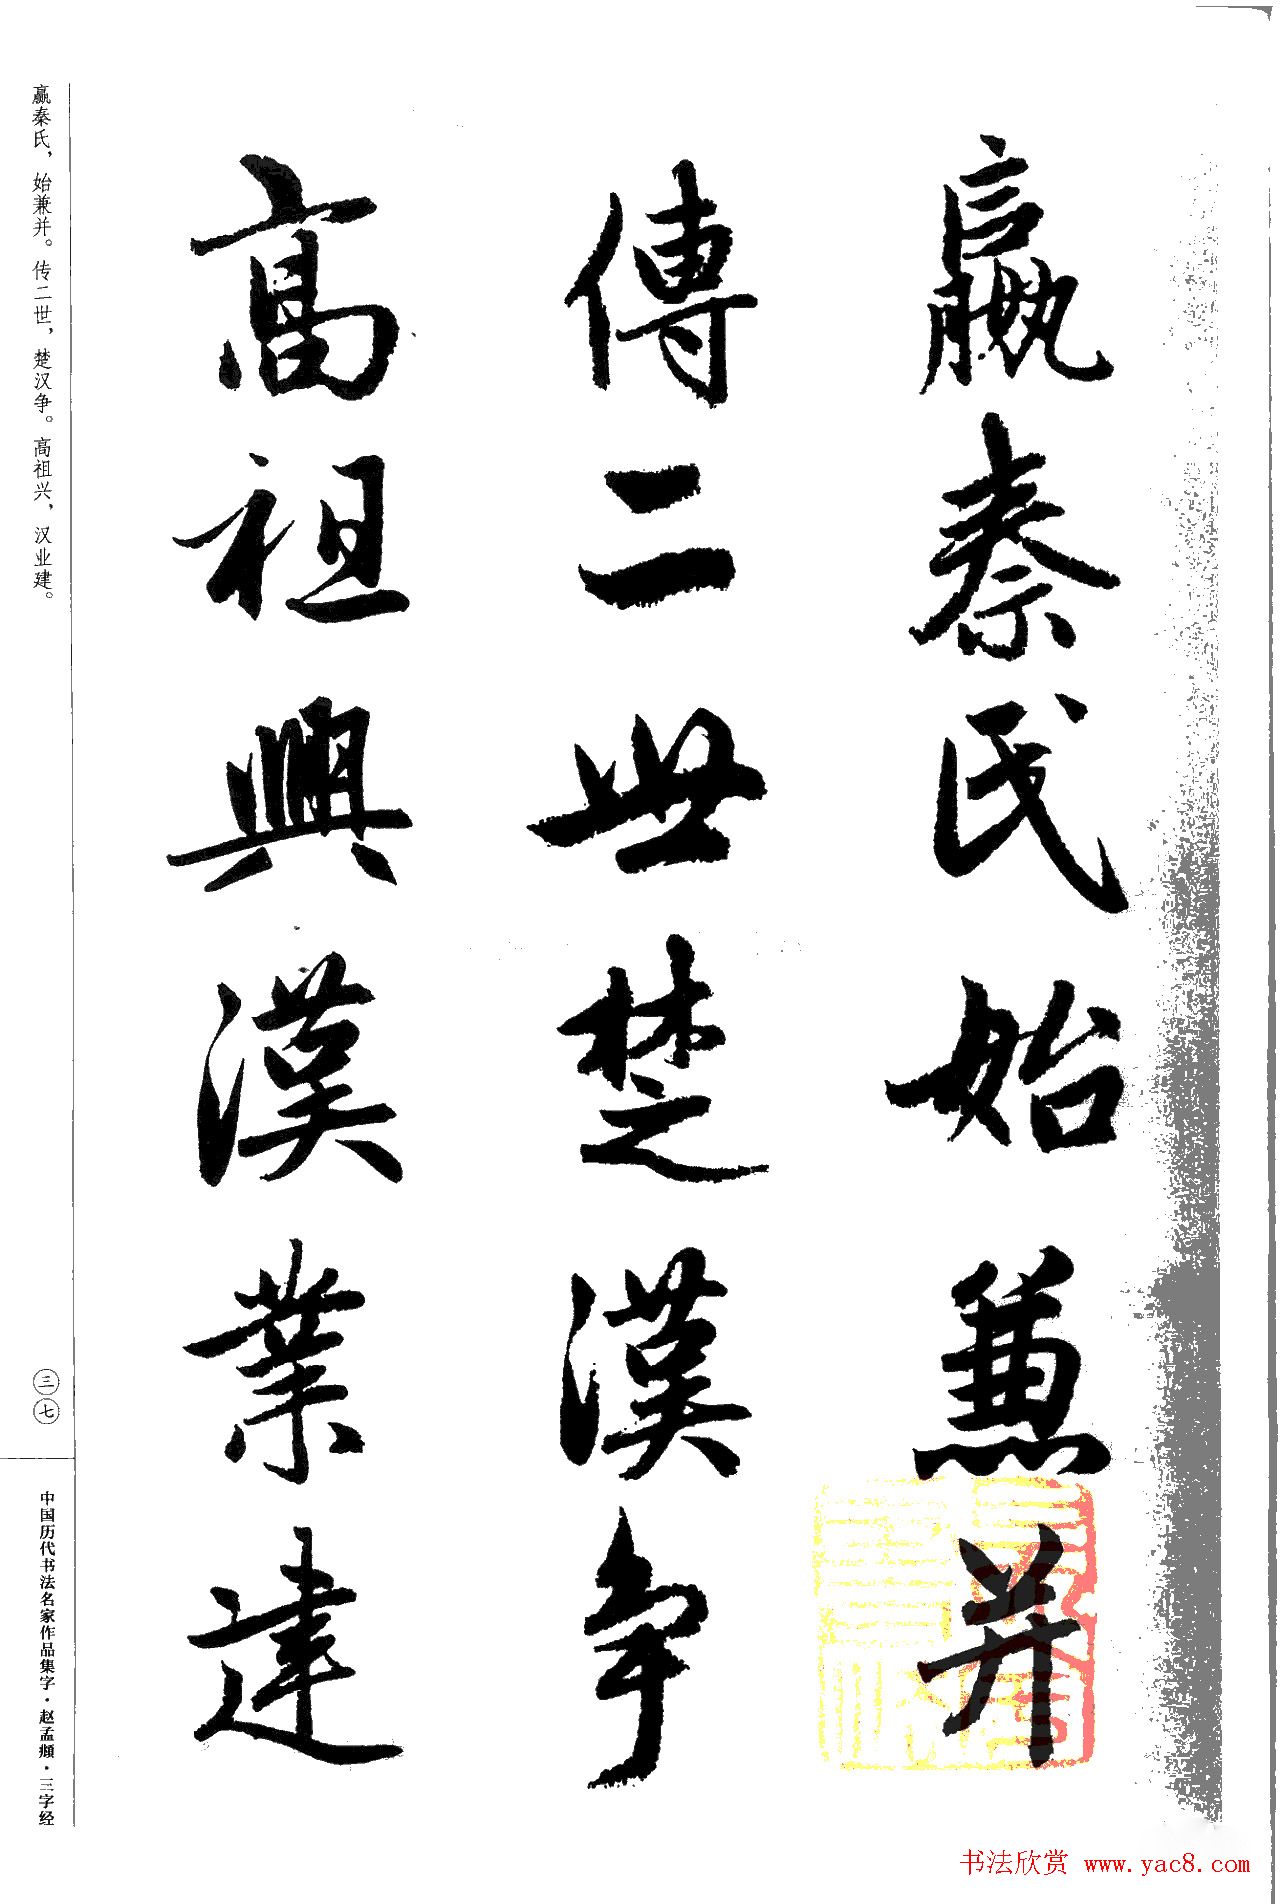 嬴秦氏始兼并
傳二世楚漢爭
高祖興漢業建
嬴秦氏，始兼并。传二世，楚汉争。高祖兴，汉业建。
三七
中国历代书法名家作品集字·赵孟頫·三字经
书法欣赏 www.yac8.com